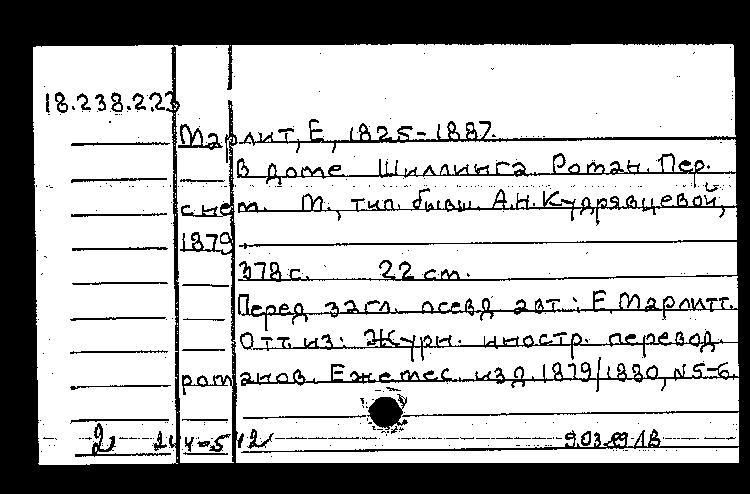 18.238.2.23
Марлит, Е, 1825-1887.
В доме Шиллинга Роман. Пер.
с нем. М., тип. бывш. А.Н. Кудрявцевой,
1879.
378 с. 22 cm.
Перед загл. псевд авт: Е. Марлитт.
Отт. из: Журн. иностр. перевод.
романов. Ежемес изд. 1879/1880, №5-6.